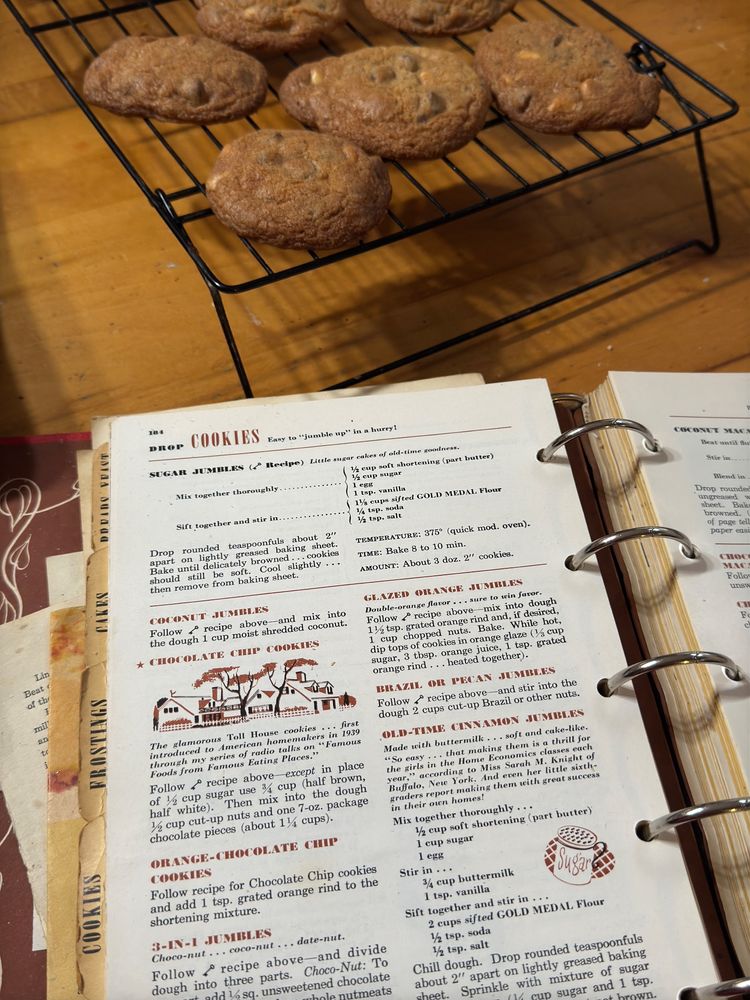 184
DROP COOKIES Easy to "jumble up" in a hurry!
SUGAR JUMBLES (🗝 Recipe) Little sugar cakes of old-time goodness.
Mix together thoroughly
½ cup soft shortening (part butter)
½ cup sugar
1 egg
1 tsp. vanilla
Sift together and stir in
1⅛ cups sifted GOLD MEDAL Flour
¼ tsp. soda
½ tsp. salt
Drop rounded teaspoonfuls about 2"
apart on lightly greased baking sheet.
Bake until delicately browned . . . cookies
should still be soft. Cool slightly . . .
then remove from baking sheet.
TEMPERATURE: 375° (quick mod. oven).
TIME: Bake 8 to 10 min.
AMOUNT: About 3 doz. 2" cookies.
COCONUT JUMBLES
Follow 🗝 recipe above—and mix into
the dough 1 cup moist shredded coconut.
★ CHOCOLATE CHIP COOKIES
The glamorous Toll House cookies . . . first
introduced to American homemakers in 1939
through my series of radio talks on "Famous
Foods from Famous Eating Places."
Follow 🗝 recipe above—except in place
of ½ cup sugar use ¾ cup (half brown,
half white). Then mix into the dough
½ cup cut-up nuts and one 7-oz. package
chocolate pieces (about 1¼ cups).
ORANGE-CHOCOLATE CHIP
COOKIES
Follow recipe for Chocolate Chip cookies
and add 1 tsp. grated orange rind to the
shortening mixture.
3-IN-1 JUMBLES
Choco-nut . . . coco-nut . . . date-nut.
Follow 🗝 recipe above—and divide
dough into three parts. Choco-Nut: To
part add ½ sq. unsweetened chocolate
whole nutmeats
GLAZED ORANGE JUMBLES
Double-orange flavor . . . sure to win favor.
Follow 🗝 recipe above—mix into dough
1½ tsp. grated orange rind and, if desired,
1 cup chopped nuts. Bake. While hot,
dip tops of cookies in orange glaze (⅓ cup
sugar, 3 tbsp. orange juice, 1 tsp. grated
orange rind . . . heated together).
BRAZIL OR PECAN JUMBLES
Follow 🗝 recipe above—and stir into the
dough 2 cups cut-up Brazil or other nuts.
OLD-TIME CINNAMON JUMBLES
Made with buttermilk . . . soft and cake-like.
"So easy . . . that making them is a thrill for
the girls in the Home Economics classes each
year," according to Miss Sarah M. Knight of
Buffalo, New York. And even her little sixth-
graders report making them with great success
in their own homes!
Mix together thoroughly . . .
½ cup soft shortening (part butter)
1 cup sugar
1 egg
Stir in . . .
¾ cup buttermilk
1 tsp. vanilla
Sift together and stir in . . .
2 cups sifted GOLD MEDAL Flour
½ tsp. soda
½ tsp. salt
Sugar
Chill dough. Drop rounded teaspoonfuls
about 2" apart on lightly greased baking
sheet. Sprinkle with mixture of sugar
(¼ cup sugar and 1 tsp.
CAKES
FROSTINGS
COOKIES
COCONUT MACA
Beat until
Stir in
Blend in
Drop rounded
ungreased
sheet. Bake
browned.
of page tell
paper easi
CHOC
MACA
Follo
unsw
Follo